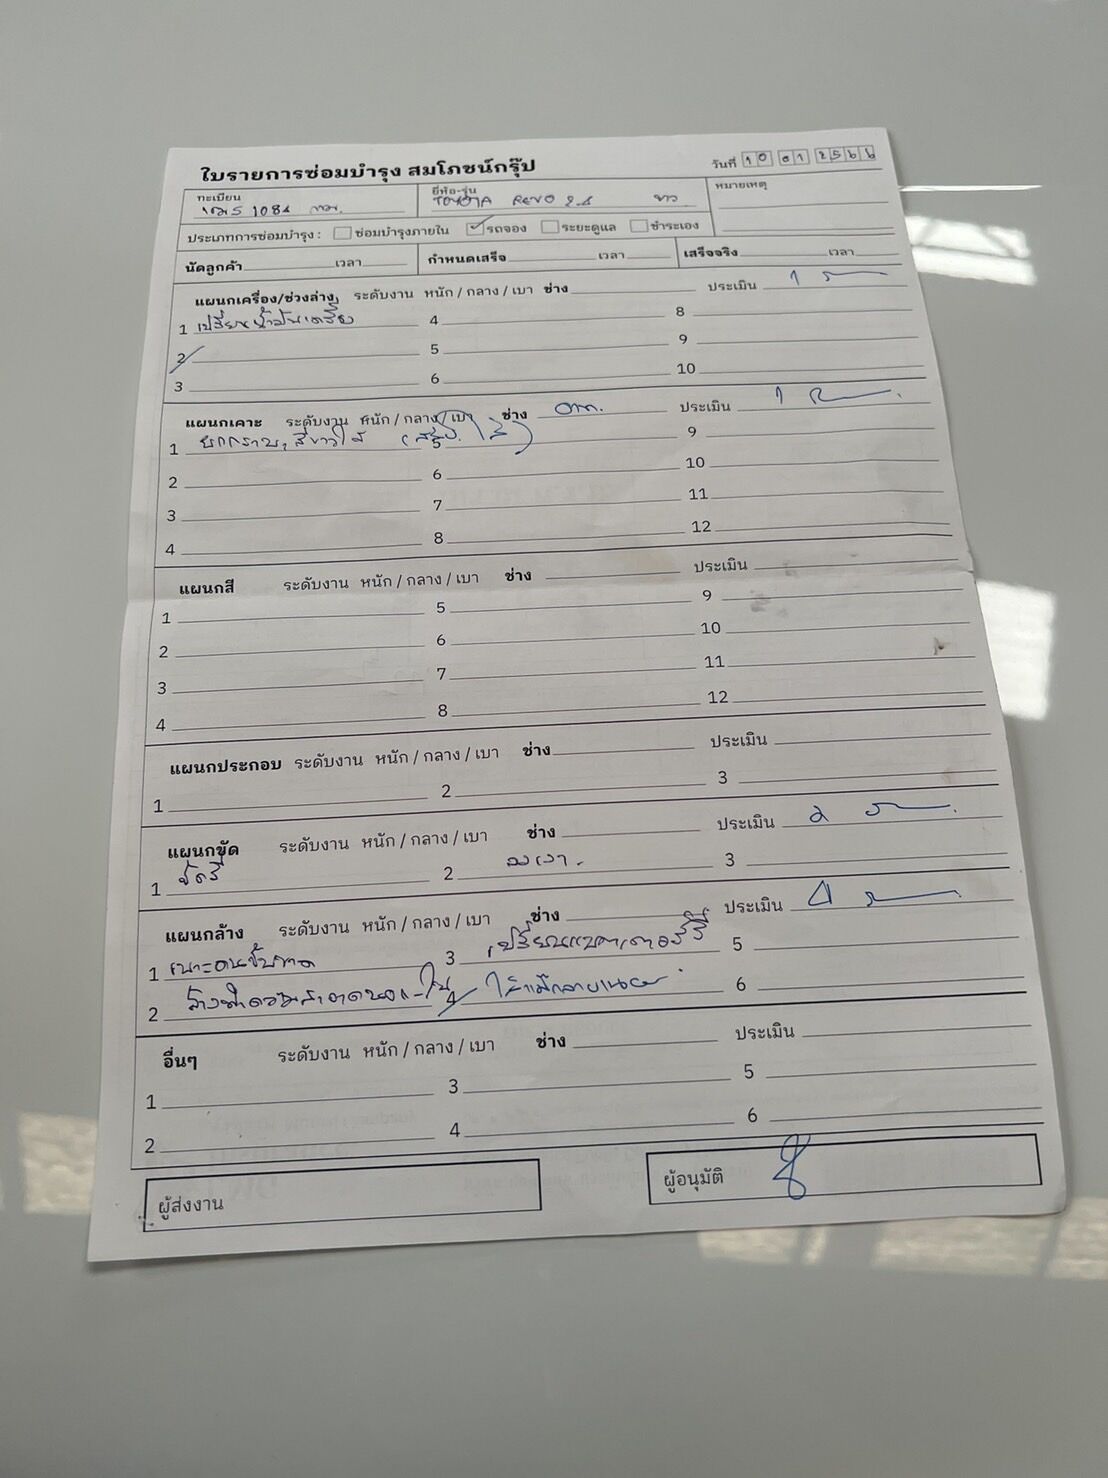 ใบรายการซ่อมบำรุง สมโภชน์กรุ๊ป
วันที่ 10 01 2566
ทะเบียน 1084 กทม.
ยี่ห้อ-รุ่น TOYOTA REVO 2.4 ขาว
หมายเหตุ
ประเภทการซ่อมบำรุง : ซ่อมบำรุงภายใน รถจอง ระยะดูแล ชำระเอง
นัดลูกค้า เวลา กำหนดเสร็จ เวลา เสร็จจริง เวลา
แผนกเครื่อง/ช่วงล่าง ระดับงาน หนัก / กลาง / เบา ช่าง ประเมิน 1
1 เปลี่ยนน้ำมันเครื่อง 4 8
2 5 9
3 6 10
แผนกเคาะ ระดับงาน หนัก / กลาง / เบา ช่าง ประเมิน 1
1 5 9
2 6 10
3 7 11
4 8 12
แผนกสี ระดับงาน หนัก / กลาง / เบา ช่าง ประเมิน
1 5 9
2 6 10
3 7 11
4 8 12
แผนกประกอบ ระดับงาน หนัก / กลาง / เบา ช่าง ประเมิน
1 2 3
แผนกขัด ระดับงาน หนัก / กลาง / เบา ช่าง ประเมิน 2
1 ขัดสี 2 ลงเงา 3
แผนกล้าง ระดับงาน หนัก / กลาง / เบา ช่าง ประเมิน 4
1 3 เปลี่ยนแบตเตอรี่ 5
2 ล้างทำความสะอาดนอก-ใน 4 6
อื่นๆ ระดับงาน หนัก / กลาง / เบา ช่าง ประเมิน
1 3 5
2 4 6
ผู้ส่งงาน ผู้อนุมัติ